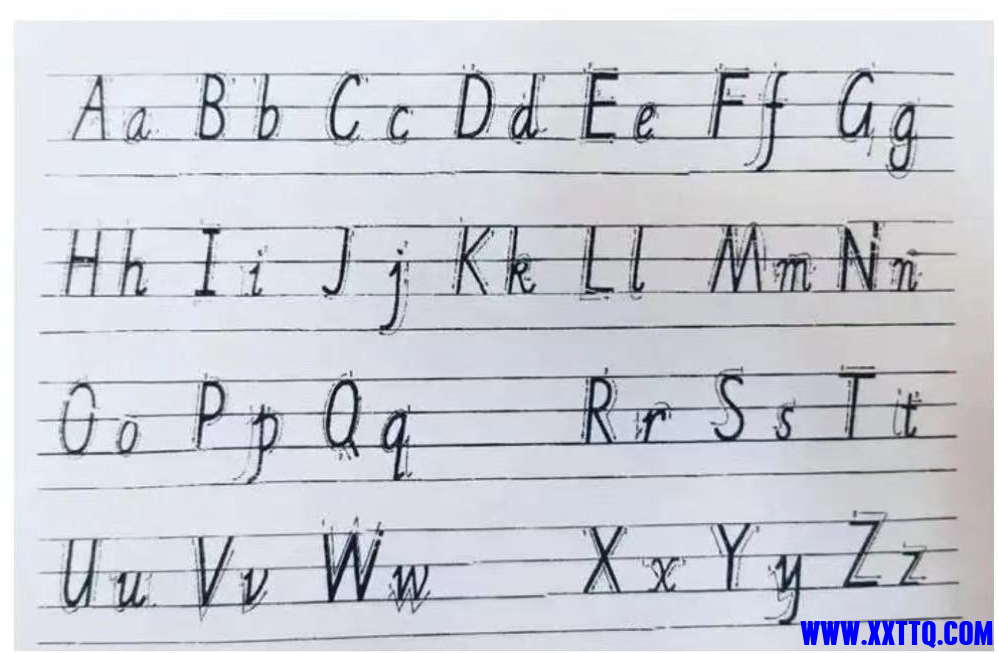 A a B b C c D d E e F f G g
H h I i J j K k L l M m N n
O o P p Q q R r S s T t
U u V v W w X x Y y Z z
WWW.XXTTQ.COM